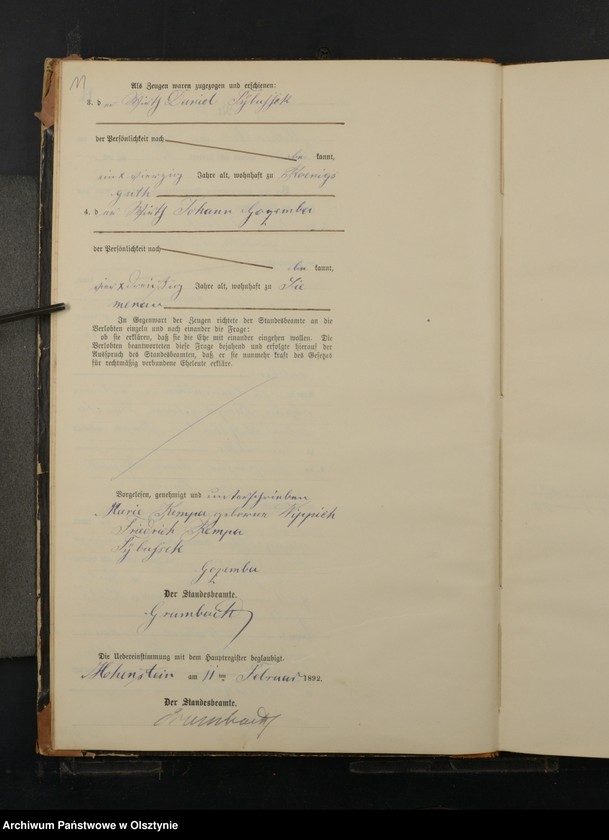 11
Als Zeugen waren zugezogen und erschienen:
3. der Wirth Daniel Sybussek
der Persönlichkeit nach
be kannt,
ein & vierzig Jahre alt, wohnhaft zu Koenigs
guth
4. der Wirth Johann Gozemba
der Persönlichkeit nach
be kannt,
vier & dreißig Jahre alt, wohnhaft zu Sie
menau
In Gegenwart der Zeugen richtete der Standesbeamte an die
Verlobten einzeln und nach einander die Frage:
ob sie erklären, daß sie die Ehe mit einander eingehen wollen. Die
Verlobten beantworteten diese Frage bejahend und erfolgte hierauf der
Ausspruch des Standesbeamten, daß er sie nunmehr kraft des Gesetzes
für rechtmäßig verbundene Eheleute erkläre.
Vorgelesen, genehmigt und unterschrieben
Marie Kempa geborene Nippich
Friedrich Kempa
Sybussek
Gozemba
Der Standesbeamte.
Grumbach
Die Uebereinstimmung mit dem Hauptregister beglaubigt.
Hohenstein am 11 ten Februar 1892.
Der Standesbeamte.
Grumbach
Archiwum Państwowe w Olsztynie